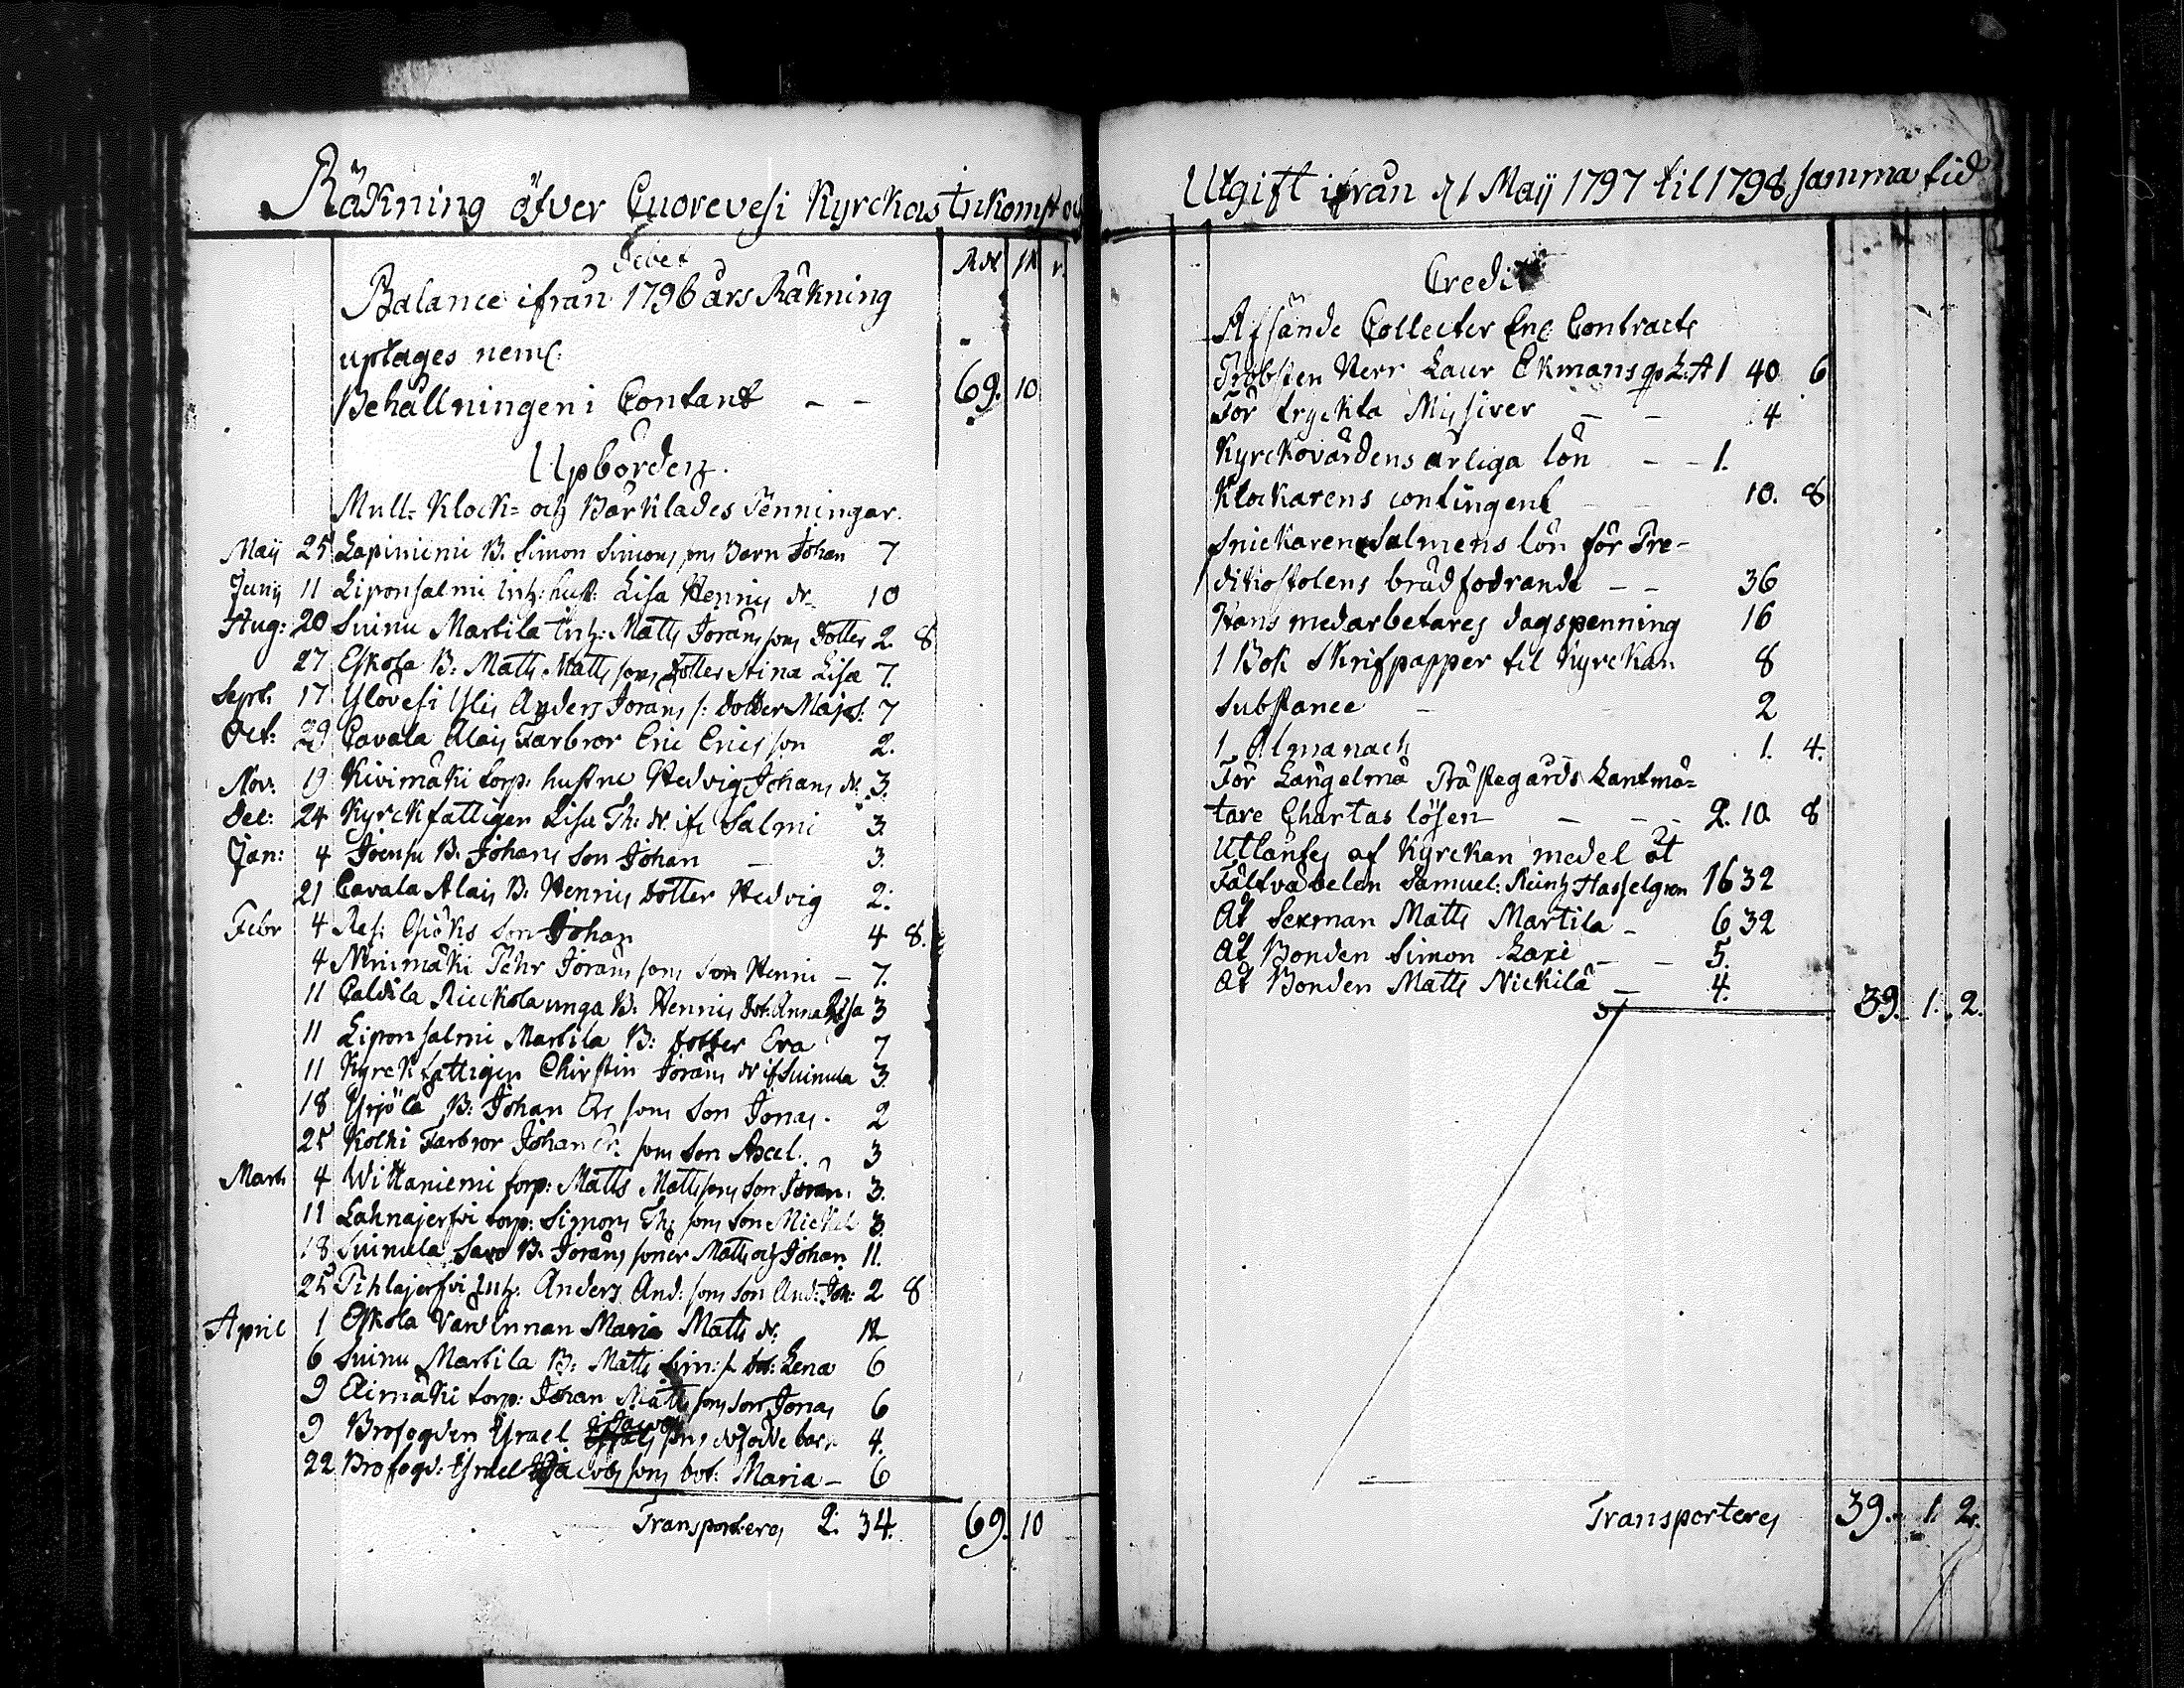 Räkning öfver Cuorevesi Kyrckas Inkomst och
Debet
Rdr ß r.
Balance ifrån 1796 års Räkning
uptages neml:
Behållningen i Contant - - 69. 10
Upbörden.
Mull- Klock- och Bårklädes Penningar.
Maij 25 Lapiniemi B. Simon Simons sons Barn Johan 7
Junij 11 Liponsalmi Inh: hust: Lisa Henrics dr 10
Aug: 20 Suinu Martila Inh: Matts Jörans sons dotter 2. 8
27 Eskola B: Matts Matts sons dotter Stina Lisa 7.
Sept. 17 Ylövesi Ylis Anders Jörans s: dotter Maja s: 7
Oct: 29 Cavala Alais Farbror Eric Erics son 2.
Nov. 19 Kivimäki torp: hustru Hedvig Johans dr. 3.
Dec: 24 Kyrckfattigen Lisa Th: dr. ifr Salmi 3.
Jan: 4 Joensu B. Johans Son Johan - 3.
21 Cavala Alais B: Henrics dotter Hedvig 2.
Febr 4 Res: Giöks Son Johan 4 8.
4 Ninimäki Pehr Jörans sons Son Henric - 7.
11 Caldila Rieckola unga B. Henrics dot: Anna Lisa 3
11 Liponsalmi Martila B: dotter Eva 7
11 Kyrckfattigen Christin Jörans dr if Suinula 3.
18 Yrjölä B: Johan Ers sons Son Jonas. 2
25 Kolhi Farbror Johan Er. sons Son Axel. 3
Mart. 4 Wittaniemi torp: Matts Matts sons Son Jöran. 3.
11 Lahnajerfvi torp: Simons Ths sons Son Mickel 3.
18 Suinula Savo B. Jörans söner Matts och Johan 11.
25 Pihlajerfvi Inh: Anders And: sons Son And: Joh: 2 8
April 1 Eskola Värdinnan Maria Matts dr. 12
6 Suinu Martila B: Matts Sim: s. dot: Lena 6
9 Elimäki torp: Johan Matts sons Son Jonas 6
9 Brofogden Israel Jacobs sons dödfödde barn 4.
22 Brofogd: Israel Jacobs sons dot: Maria - 6
Transporteras 2. 34. 69. 10
Utgift ifrån d 1 Maij 1797 til 1798 samma tid
Credit
Afsände Collecter Enl Contracts
Probsten Herr Laur Ekmans qv L: A 1 40 6
För tryckta Missiver - - 4
Kyrckovärdens årliga lön - - 1.
Klockarens contingent - - 10. 8
Snickaren Salmens lön för Pre-
dikostolens brädfodrande - - 36
Hans medarbetares dagspenning 16
1 Bok Skrifpapper til Kyrckan 8
Substance - 2
1 Almanach 1. 4.
För Längelmä Prästegårds Lantmä-
tare Chartas lösen - - - 2. 10. 8
Utlåntes af Kyrckan medel åt
Fältväbelen Samuel: Reinh Hasselgren 16 32
Åt Sexman Matts Martila - 6 32
Åt Bonden Simon Laxi - - 5.
Åt Bonden Matts Nickilä - 4.
39. 1. 2.
Transporteres 39. 1. 2.